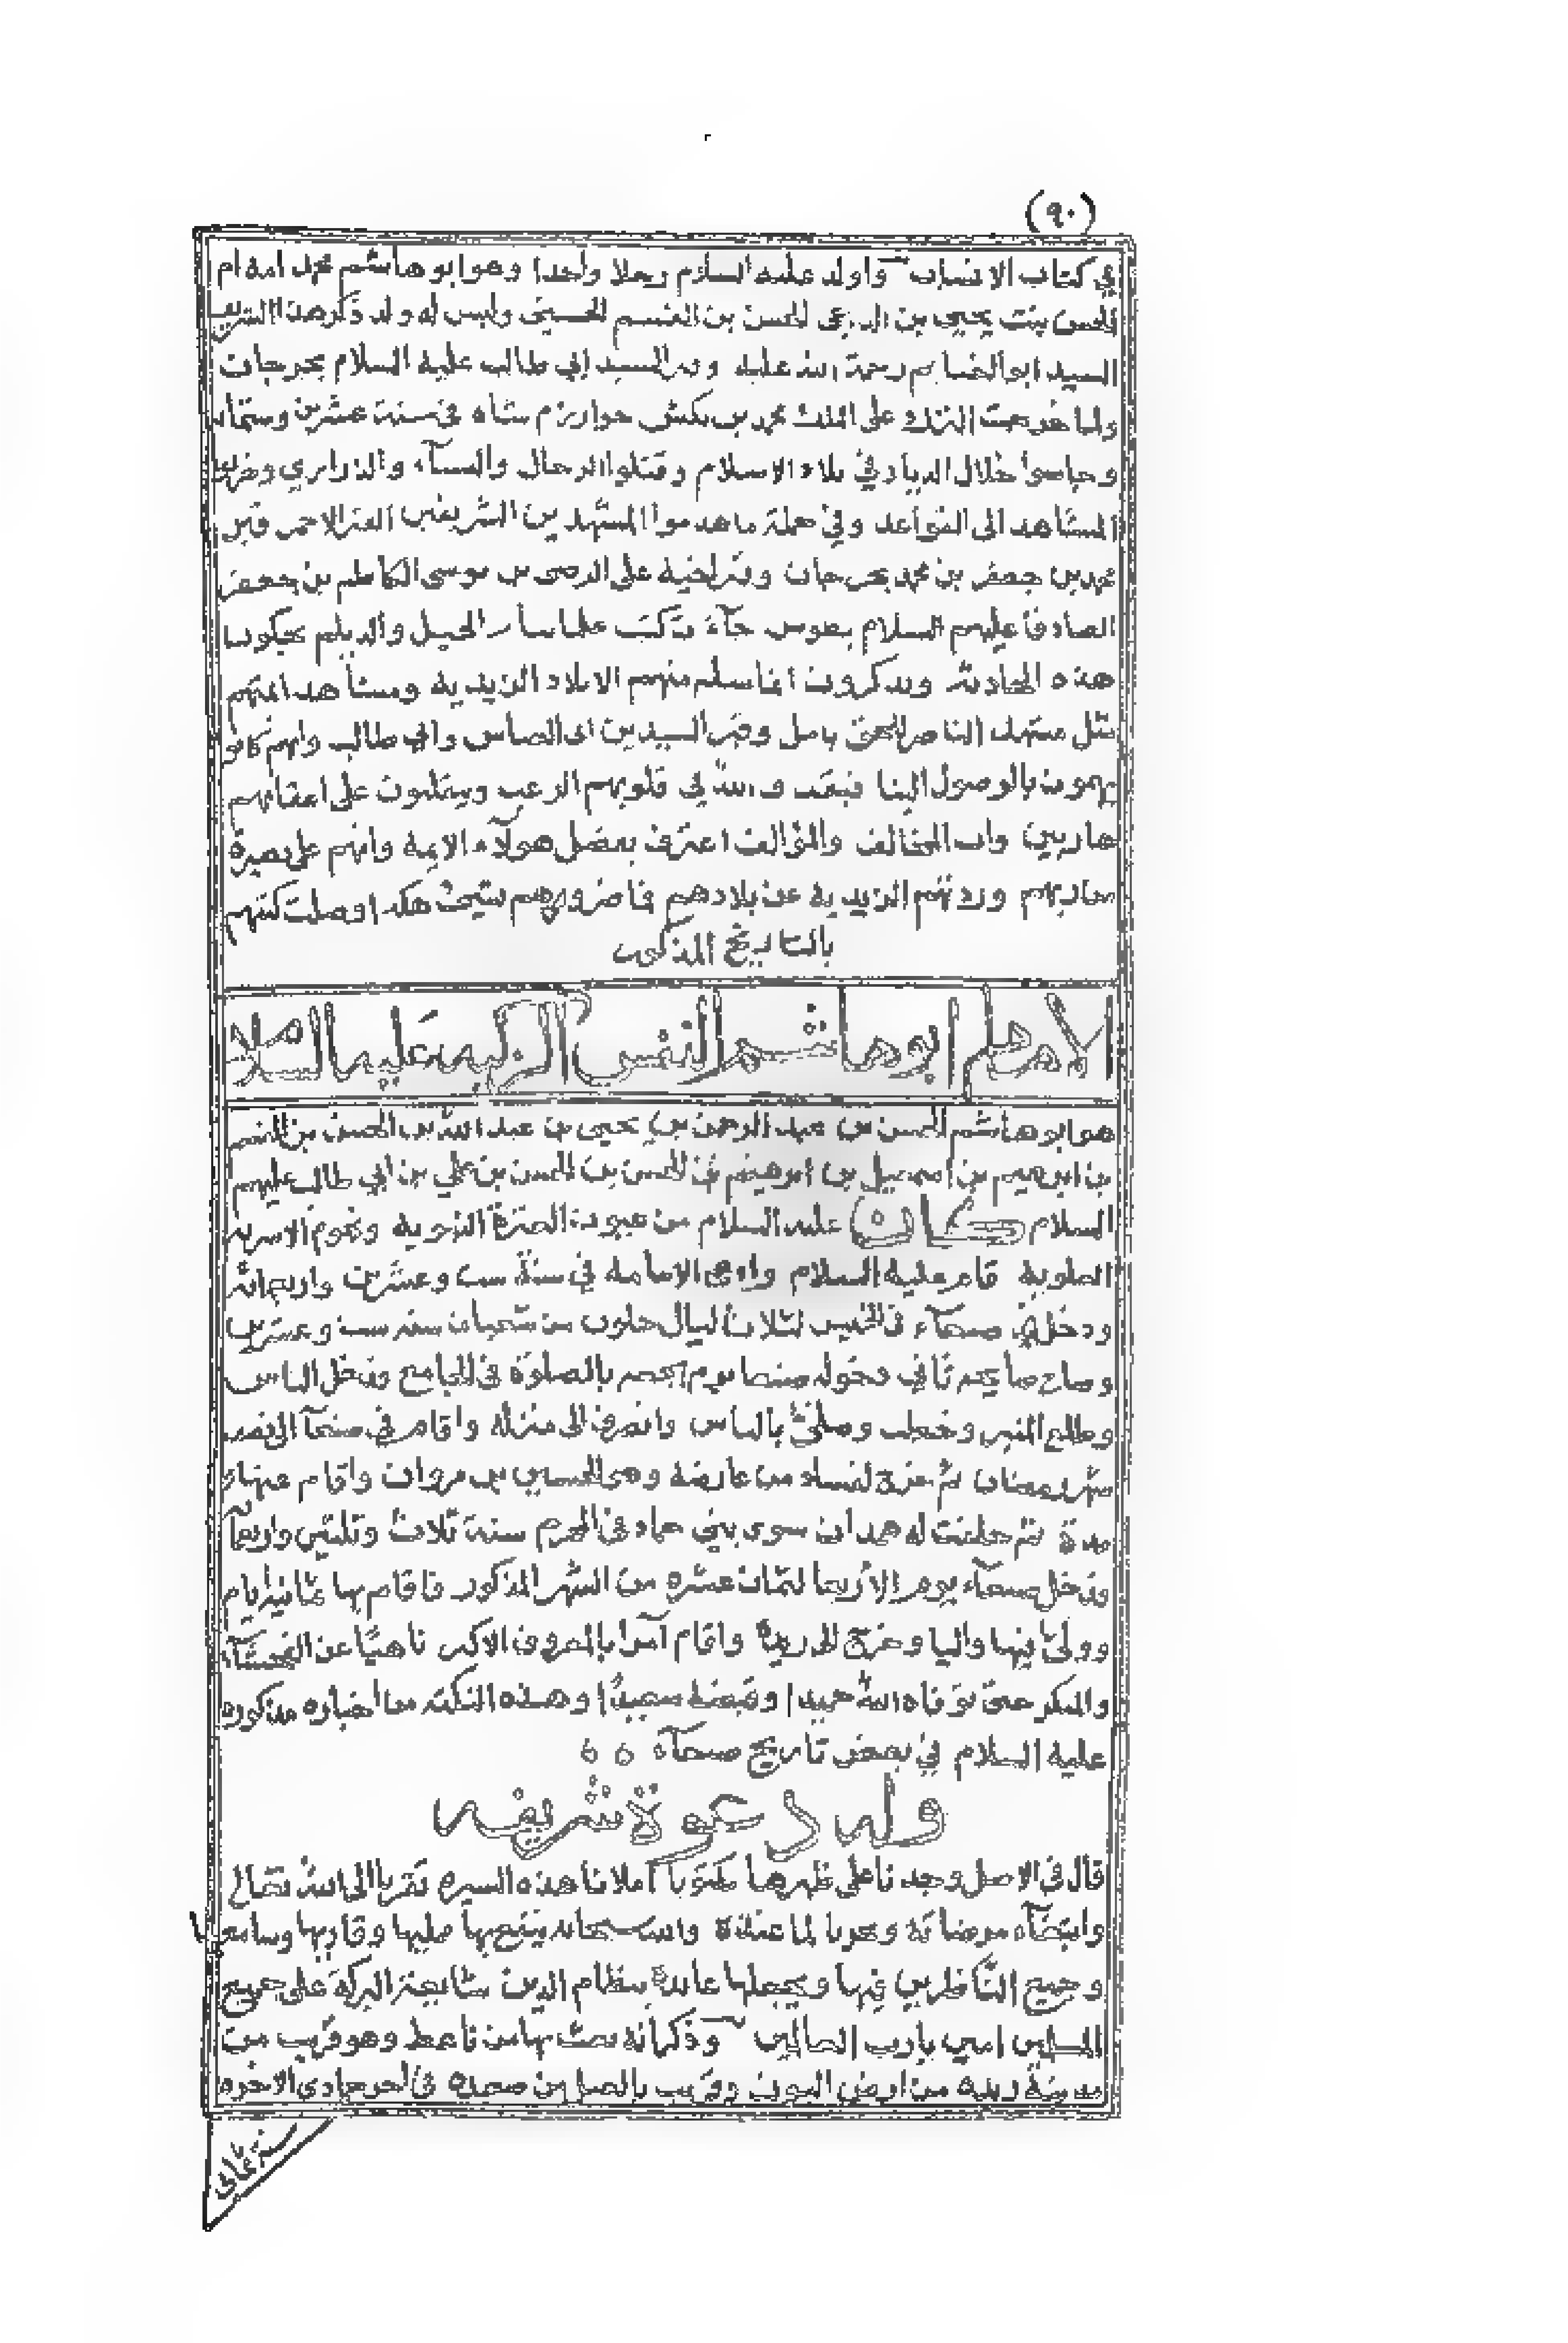 (٩٠)
في كتاب الانساب واولد عليه السلام رجلا واحدا وهو ابو هاشم محمد امه ام
الحسن بنت يحيى بن الداعي الحسن بن القسم الحسيني وليس له ولد ذكر هذا الشريف
السيد ابو الغنايم رحمة الله عليه وقبر السيد ابي طالب عليه السلام بجرجان
ولما خرجت الترك على الملك محمد بن تكش خوارزم شاه في سنة عشرين وستمائة
وجاسوا خلال الديار في بلاد الاسلام وقتلوا الرجال والنسآء والذراري وخربوا
المشاهد الى القواعد وفي جملة ما هدموا المشهدين الشريفين القبر الاحمر قبر
محمد بن جعفر بن محمد بجرجان وقبر اخيه علي الرضى بن موسى الكاظم بن جعفر
الصادق عليهم السلام بطوس جآءت كتب علماء الجيل والديلم يحكون
هذه الحادثة ويذكرون انما سلم منهم الا بلاد الزيدية ومشاهد ائمتهم
مثل مشهد الناصر للحق بامل وقبر السيدين ابي العباس وابي طالب وانهم كانوا
يهمون بالوصول الينا فيقذف الله في قلوبهم الرعب وينقلبون على اعقابهم
هاربين وان المخالف والمؤالف اعترف بفضل هولآء الايمة وانهم على بصيرة
وردتهم الزيدية عن بلادهم هكذا وصلت كتبهم
بالتاريخ المذكور
الامام ابو هاشم النفس الزكيه عليه السلام
هو ابو هاشم الحسن بن عبد الرحمن بن يحيى بن عبد الله بن الحسن بن القسم
بن ابرهيم بن اسمعيل بن ابرهيم بن الحسن بن الحسن بن علي بن ابي طالب عليهم
السلام كان عليه السلام من عيون العترة النبوية ونجوم الاسرة
العلوية قام عليه السلام وادعى الامامة في سنة ست وعشرين واربعمائة
ودخل صنعآء في الخميس لثلاث ليال خلون من شعبان سنة ست وعشرين
وصاح صايحه ثاني دخوله صنعا يوم الجمعه بالصلوة في الجامع ودخل الناس
وطلع المنبر وخطب وصلى بالناس وانصرف الى منزله واقام في صنعآ الى نصف
شهر رمضان ثم خرج لفساد من عارضه وهو الحسين بن مروان واقام عنها
مدة ثم حلفت له همدان سوى بني حماد في المحرم سنة ثلاث وثلثين واربعمائة
ودخل صنعآء يوم الاربعا لثمان عشره من الشهر المذكور فاقام بها ثمانية ايام
وولى فيها واليا وخرج الى ريدة واقام آمرا بالمعروف الاكبر ناهيا عن الفحشآء
والمنكر حتى توفاه الله حميدا وقبضه سعيدا وهذه النكته من اخباره مذكوره
عليه السلام في بعض تاريخ صنعآء ه ه
وله دعوة شريفه
قال في الاصل وجدنا على ظهرها مكتوبا املانا هذه السيره تقربا الى الله تعالى
وابتغآء مرضاته وحربا لما عنده والله سبحانه ينفع بها مليها وقاريها وسامعها
وجميع الناظرين فيها ويجعلها عايدة بنظام الدين شايعة البركة على جميع
المسلمين امين يا رب العالمين وذكر انه بعث بها من ناعط وهو قريب من
مدينة ريده من ارض البون وقريب بالعمل من صعده في اخر جمادى الاخره
سنة ثماني